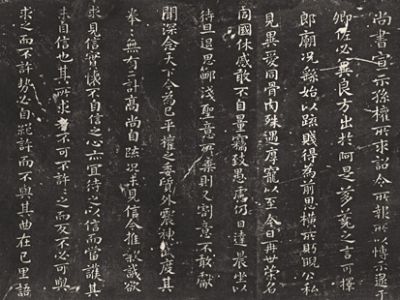 尚書宣示孫權所求詔令所報所以博示逮于
卿佐必冀良方出於阿是芻蕘之言可擇
郎廟況繇始以疏賤得為前恩橫所盼睨公私
見異愛同骨肉殊遇厚寵以至今日再世榮名
同國休慼敢不自量竊致愚慮仍日達晨坐以
待旦退思鄙淺聖意所棄則又割意不敢獻
聞深念天下今為已平權之委質外震神武度其
拳〻無有二計高尚自疏況未見信今推款誠欲
求見信實懷不自信之心亦宜待之以信而當護其
未自信也其所求者不可不許許之而反不必可與
求之而不許勢必自絕許而不與其曲在己里語